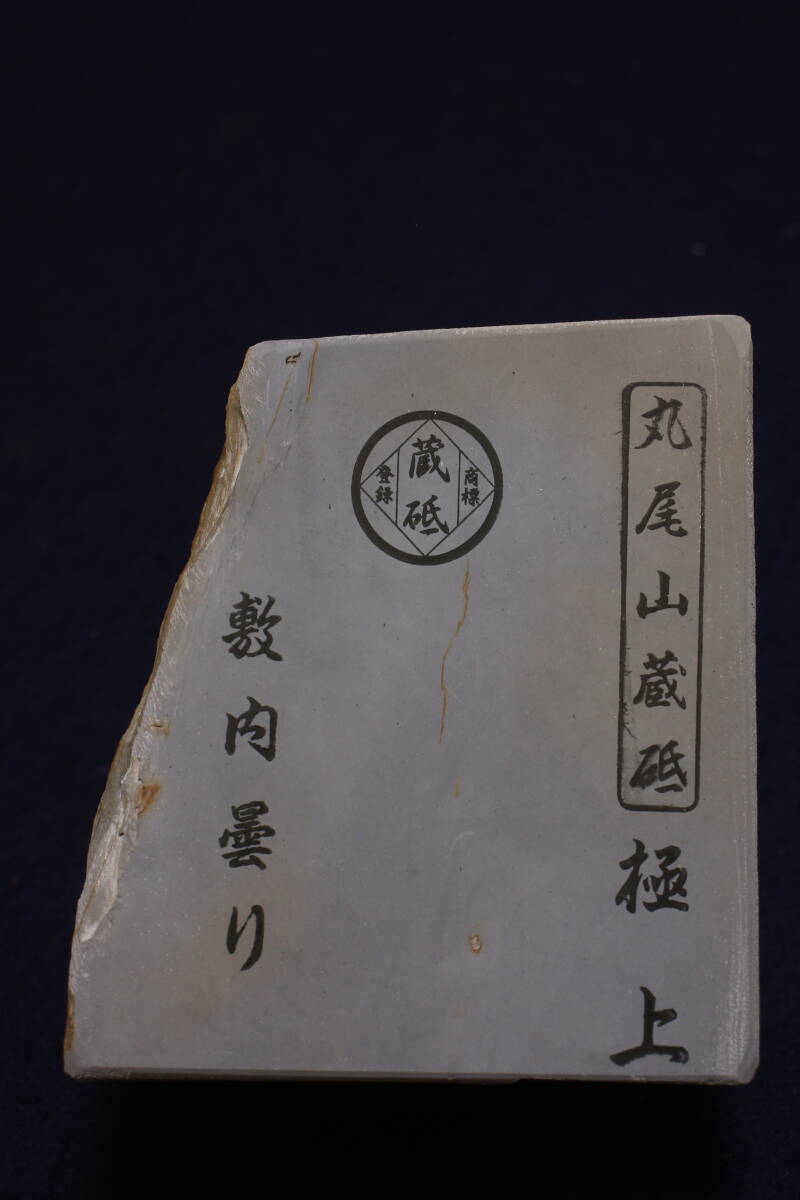 丸尾山蔵砥
極上
商標
蔵砥
登録
敷内曇り